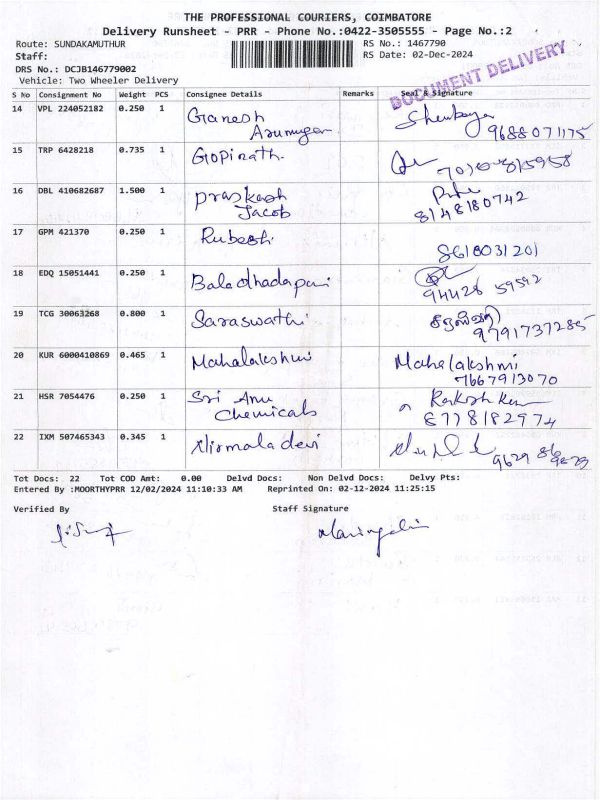 THE PROFESSIONAL COURIERS, COIMBATORE
Delivery Runsheet - PRR - Phone No.:0422-3505555 - Page No.:2
Route: SUNDAKAMUTHUR RS No.: 1467790
Staff: RS Date: 02-Dec-2024
DRS No.: DCJB146779002
Vehicle: Two Wheeler Delivery
DOCUMENT DELIVERY
S No Consignment No Weight PCS Consignee Details Remarks Seal & Signature
14 VPL 224052182 0.250 1 Ganesh
Arumugam 9688071175
15 TRP 6428218 0.735 1 Gopinath.
16 DBL 410682687 1.500 1 Praskash
Jacob 8148180742
17 GPM 421370 0.250 1 Rubesh
8618031201
18 EDQ 15051441 0.250 1
94428 59592
19 TCG 30063268 0.800 1 Saraswathi சரஸ்வதி
9791737285
20 KUR 6000410869 0.465 1 Mahalakshmi Mahalakshmi
7667913070
21 HSR 7054476 0.250 1 Sri Anu
Chemicals 8778182974
22 IXM 507465343 0.345 1 Nirmala devi
Tot Docs: 22 Tot COD Amt: 0.00 Delvd Docs: Non Delvd Docs: Delvy Pts:
Entered By :MOORTHYPRR 12/02/2024 11:10:33 AM Reprinted On: 02-12-2024 11:25:15
Verified By Staff Signature